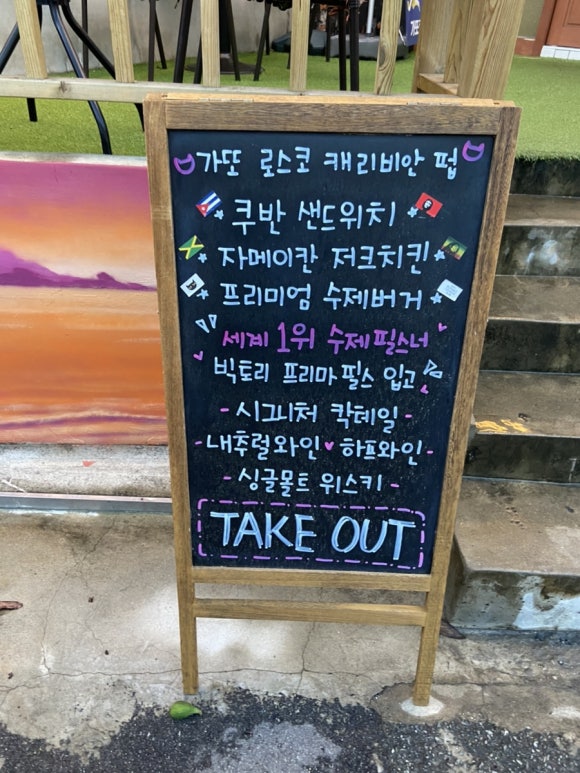 가또 로스코 캐리비안 펍
쿠반 샌드위치
자메이칸 저크치킨
프리미엄 수제버거
세계 1위 수제필스너
빅토리 프리마필스 입고
- 시그니처 칵테일 -
- 내추럴와인 ♥ 하프와인 -
- 싱글몰트 위스키 -
TAKE OUT